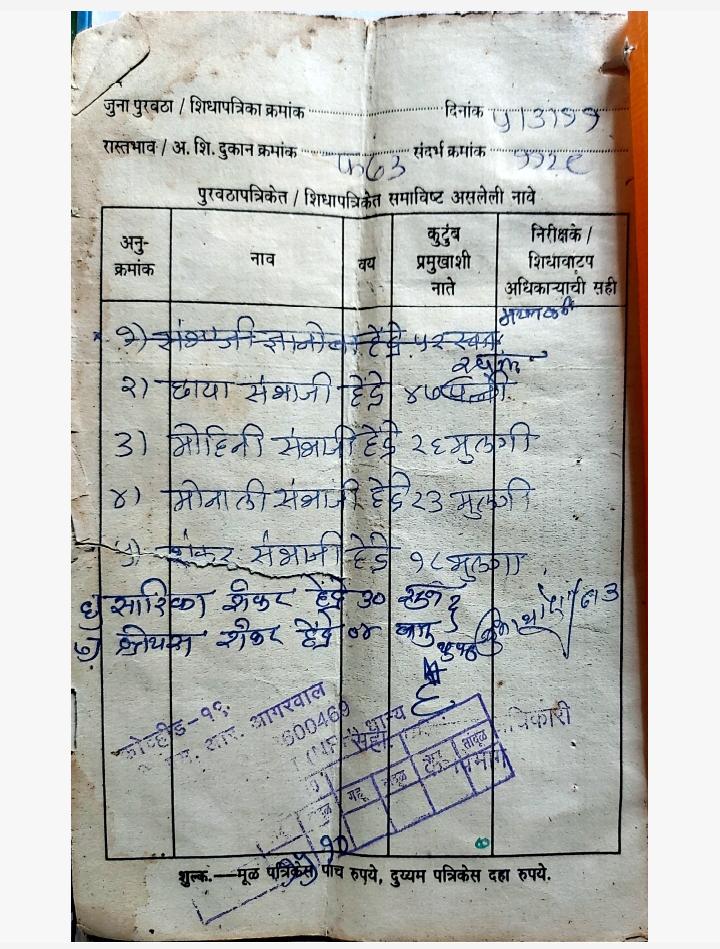 जुना पुरवठा / शिधापत्रिका क्रमांक दिनांक ५।३।११
रास्तभाव / अ. शि. दुकान क्रमांक फ63 संदर्भ क्रमांक ११२८
पुरवठापत्रिकेत / शिधापत्रिकेत समाविष्ट असलेली नावे
अनु-क्रमांक नाव वय कुटुंब प्रमुखाशी नाते निरीक्षके / शिधावाटप अधिकाऱ्याची सही
१) संभाजी ज्ञानोबा हेंद्रे ५२ स्वतः
२) छाया संभाजी हेंद्रे ४७ पत्नी
3) मोहिनी संभाजी हेंद्रे २६ मुलगी
४) मोनाली संभाजी हेंद्रे २3 मुलगी
५) शंकर संभाजी हेंद्रे १८ मुलगा
६) सारिका शंकर हेंद्रे 30
७) शंकर हेंद्रे ०४
कोव्हीड-१९
आर. आगरवाल
600469
धान्य
शुल्क.—मूळ पत्रिकेस पाच रुपये, दुय्यम पत्रिकेस दहा रुपये.